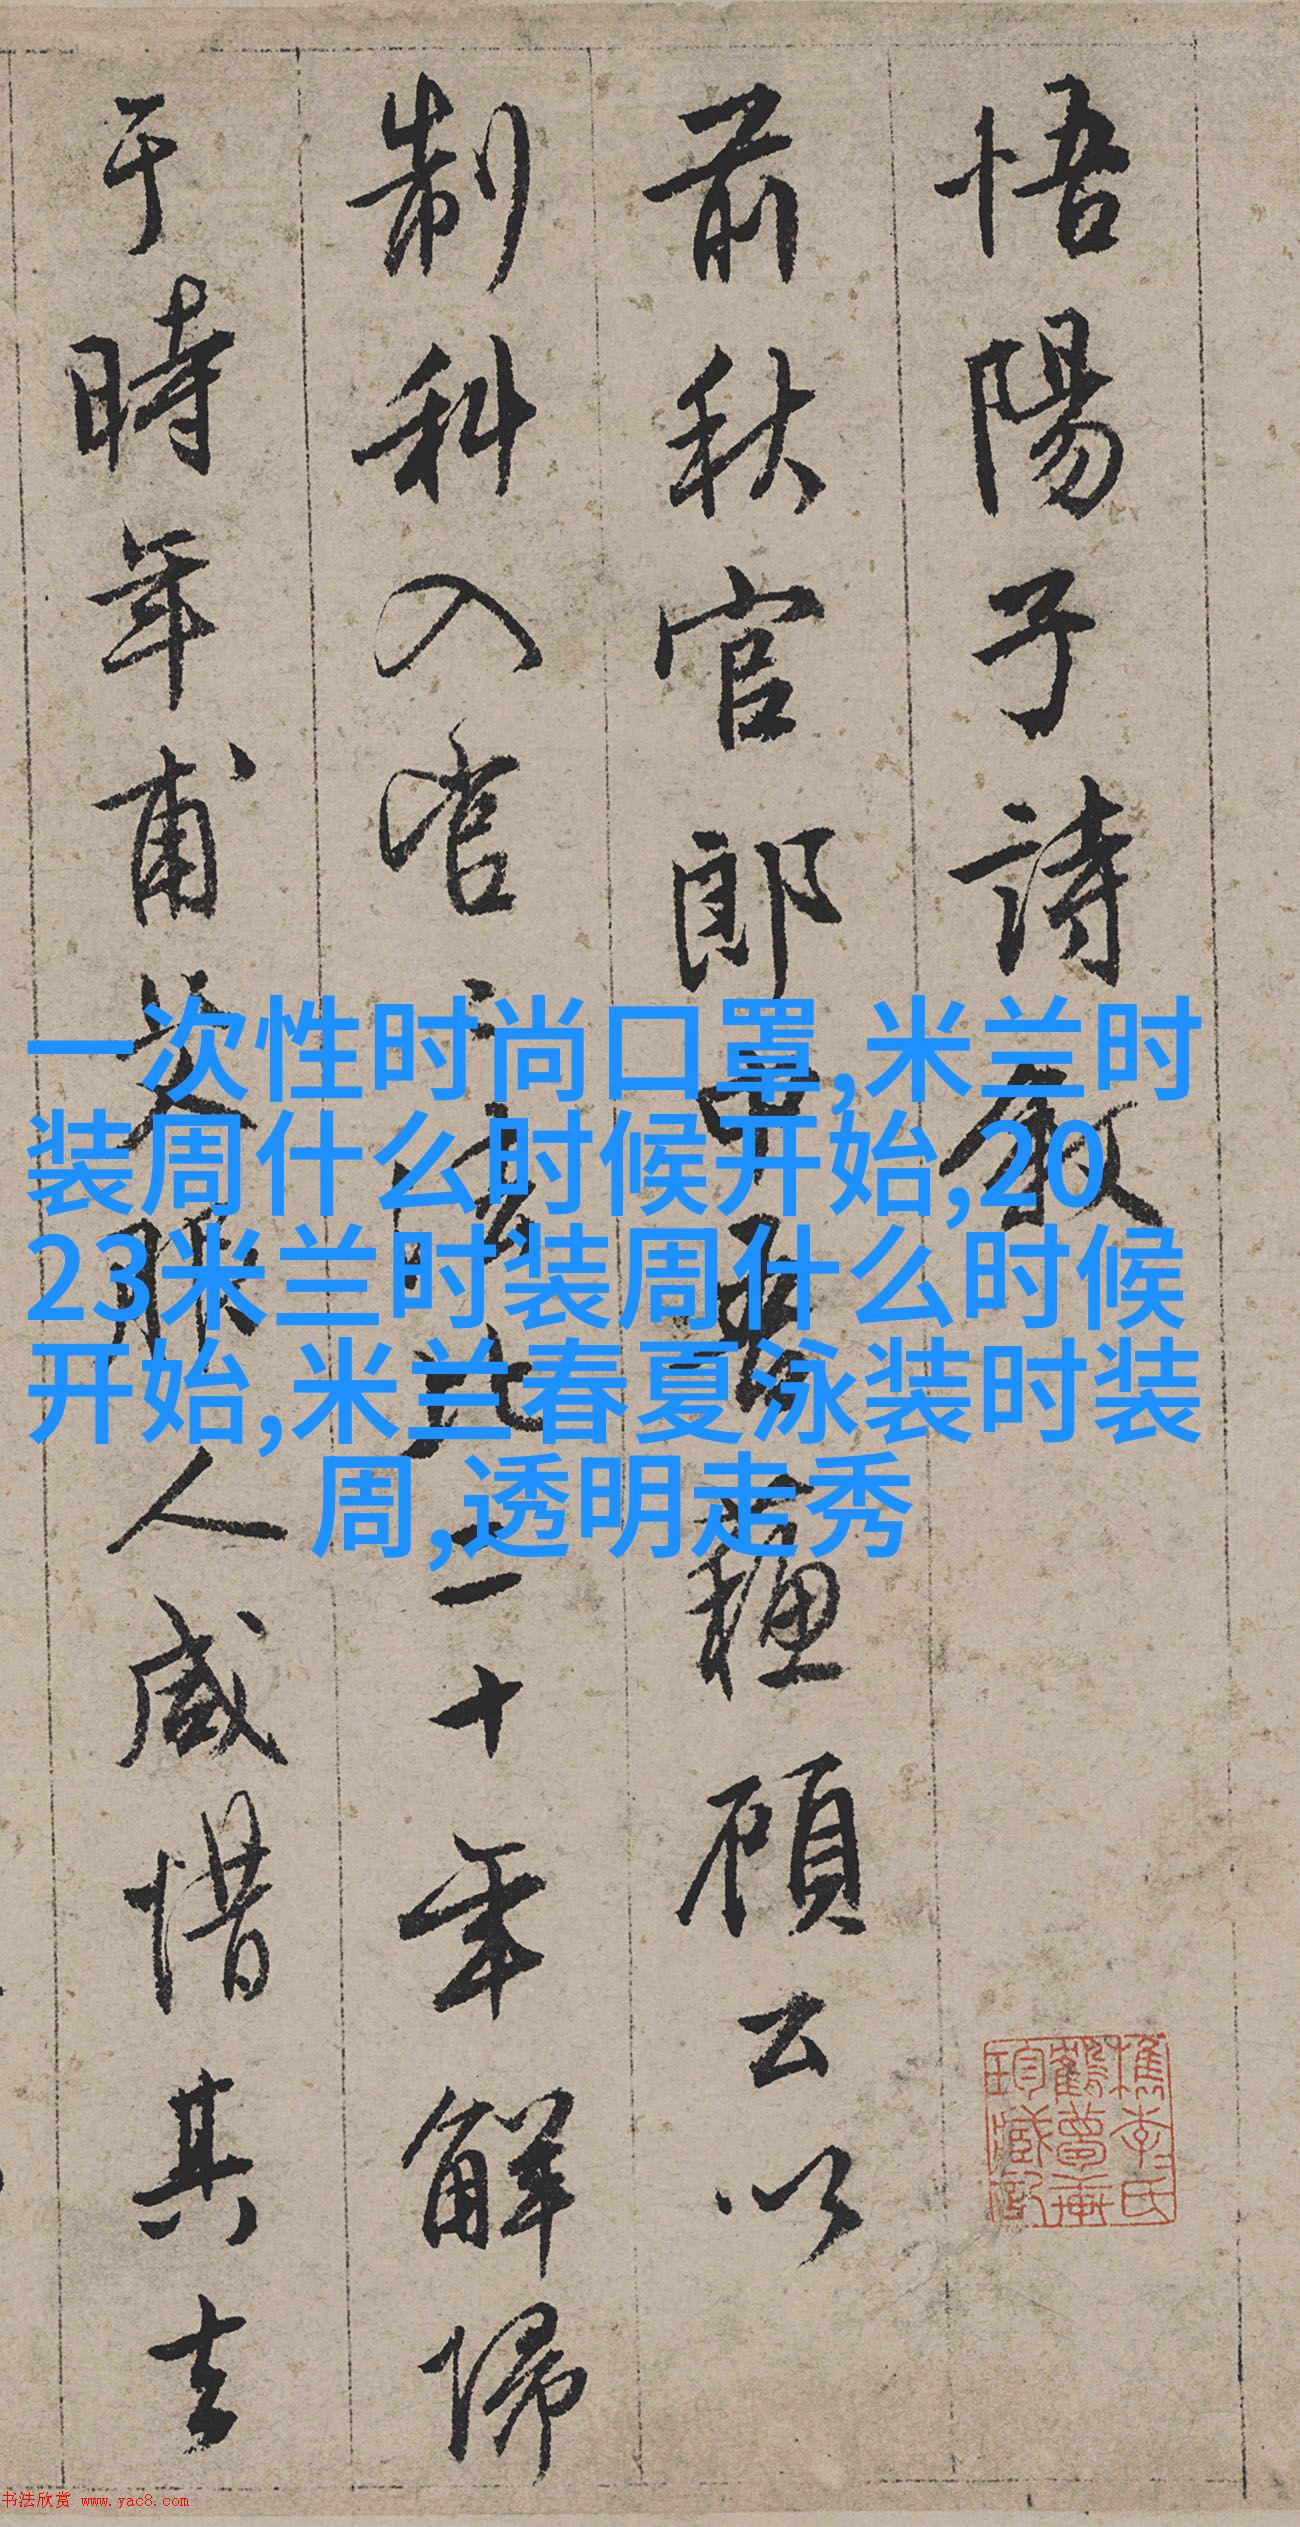 悟陽子詩敘
前秋官郎中吾蘓顧公以
制科入官
二十年解歸
于時年甫
人咸惜其去
一次性时尚口罩,米兰时
装周什么时候开始,20
23米兰时装周什么时候
开始,米兰春夏泳装时装
周,透明走秀
书法欣赏 www.yac8.com